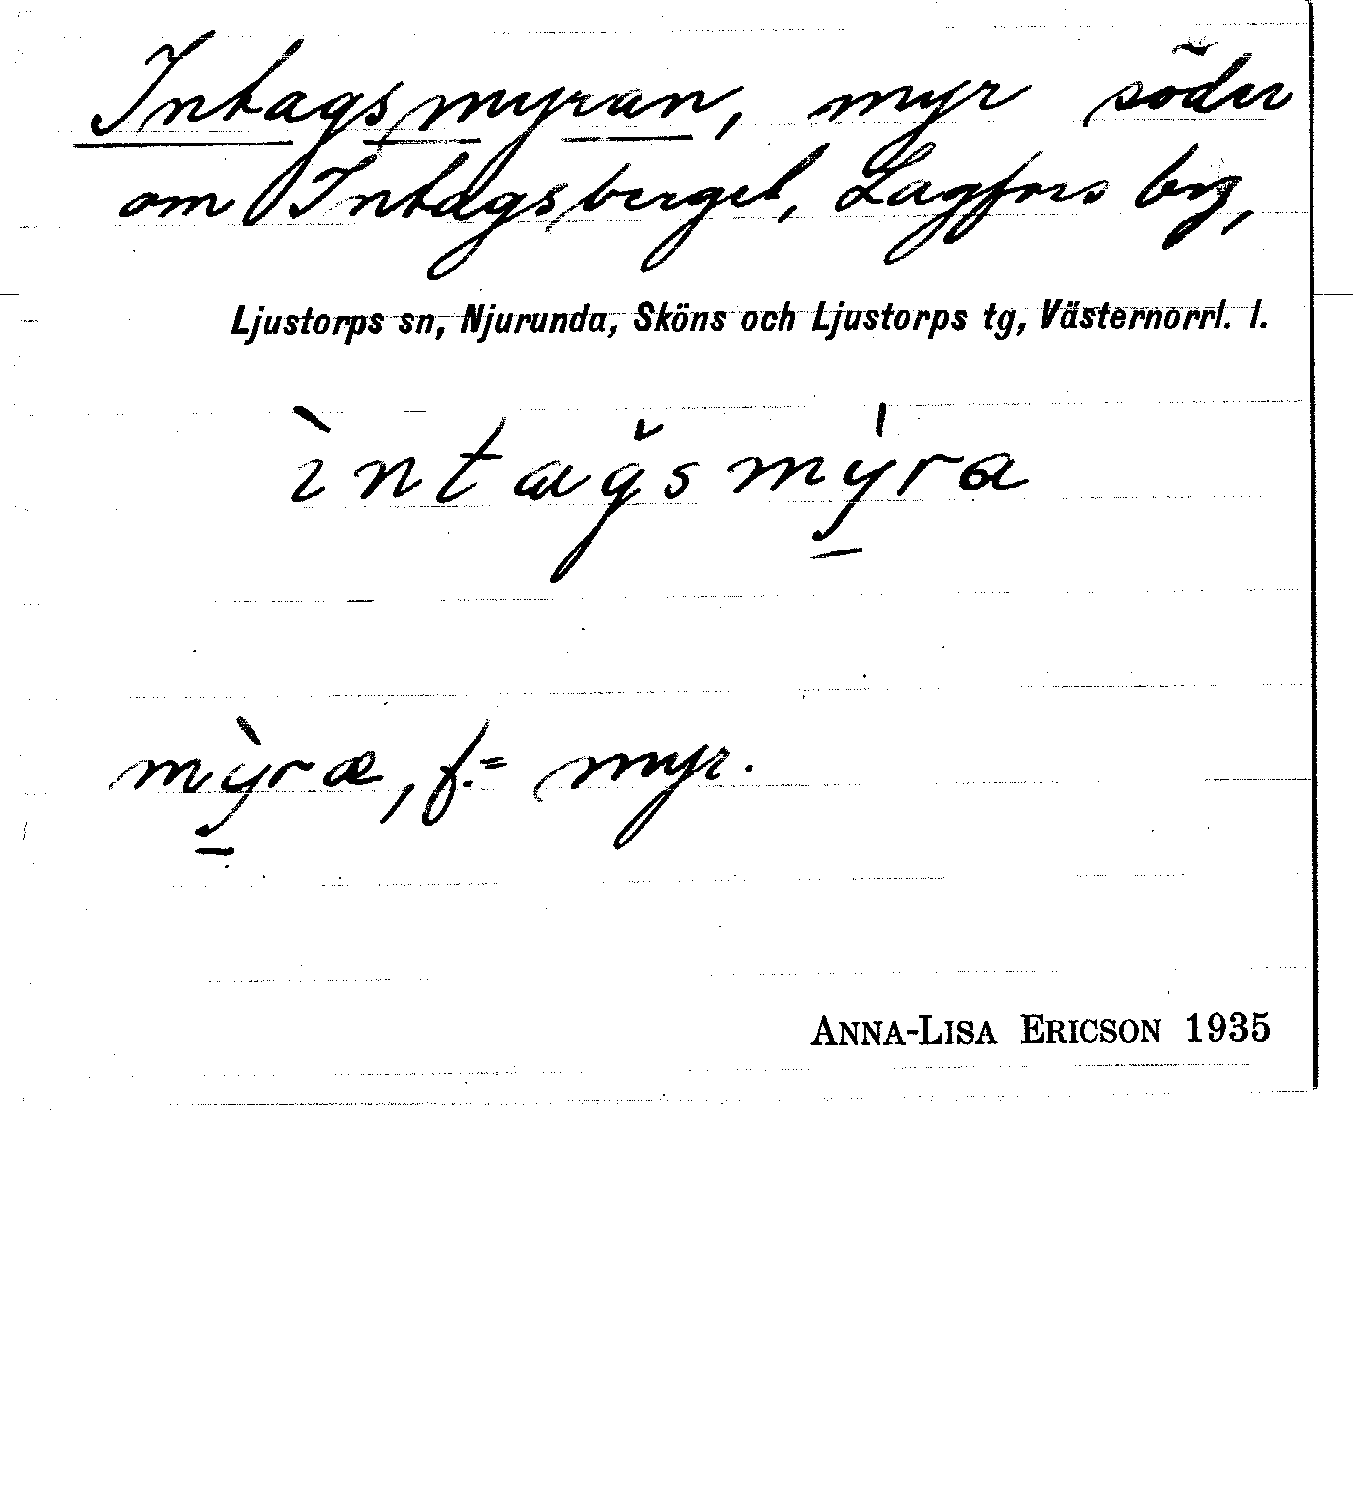 Intagsmyran, myr söder
om Intagsberget, Lagfors by,
Ljustorps sn, Njurunda, Sköns och Ljustorps tg, Västernorrl. l.
ìntag̀̌smýra
mỳræ, f. = myr.
ANNA-LISA ERICSON 1935